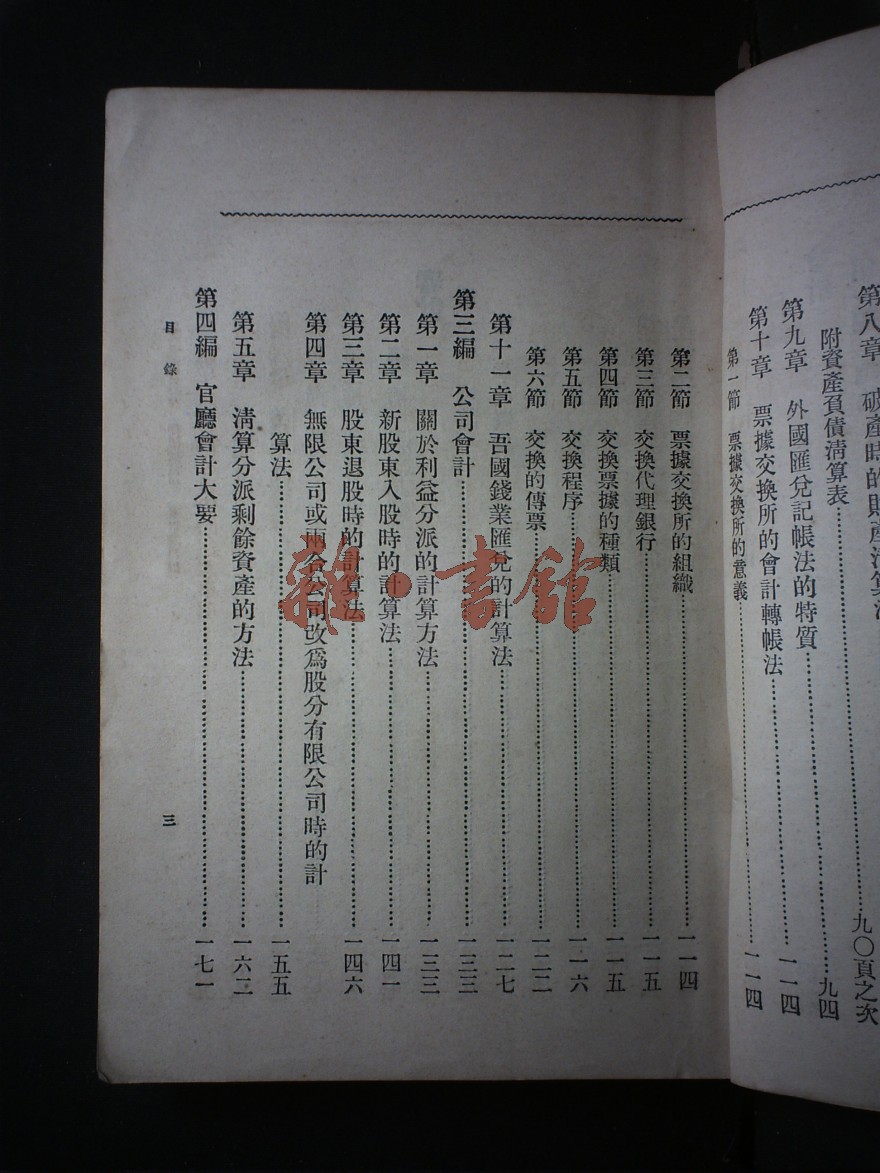 第八章 破產時的財產清算法……九〇頁之次
附資產負債清算表……九四
第九章 外國匯兌記帳法的特質……一一四
第十章 票據交換所的會計轉帳法……一一四
第一節 票據交換所的意義
第二節 票據交換所的組織……一一四
第三節 交換代理銀行……一一五
第四節 交換票據的種類……一一五
第五節 交換程序……一一六
第六節 交換的傳票……一二二
第十一章 吾國錢業匯兌的計算法……一二七
第三編 公司會計……一三三
第一章 關於利益分派的計算方法……一三三
第二章 新股東入股時的計算法……一四一
第三章 股東退股時的計算法……一四六
第四章 無限公司或兩合公司改爲股分有限公司時的計
算法……一五五
第五章 清算分派剩餘資產的方法……一六二
第四編 官廳會計大要……一七一
目錄
三
雜·書館